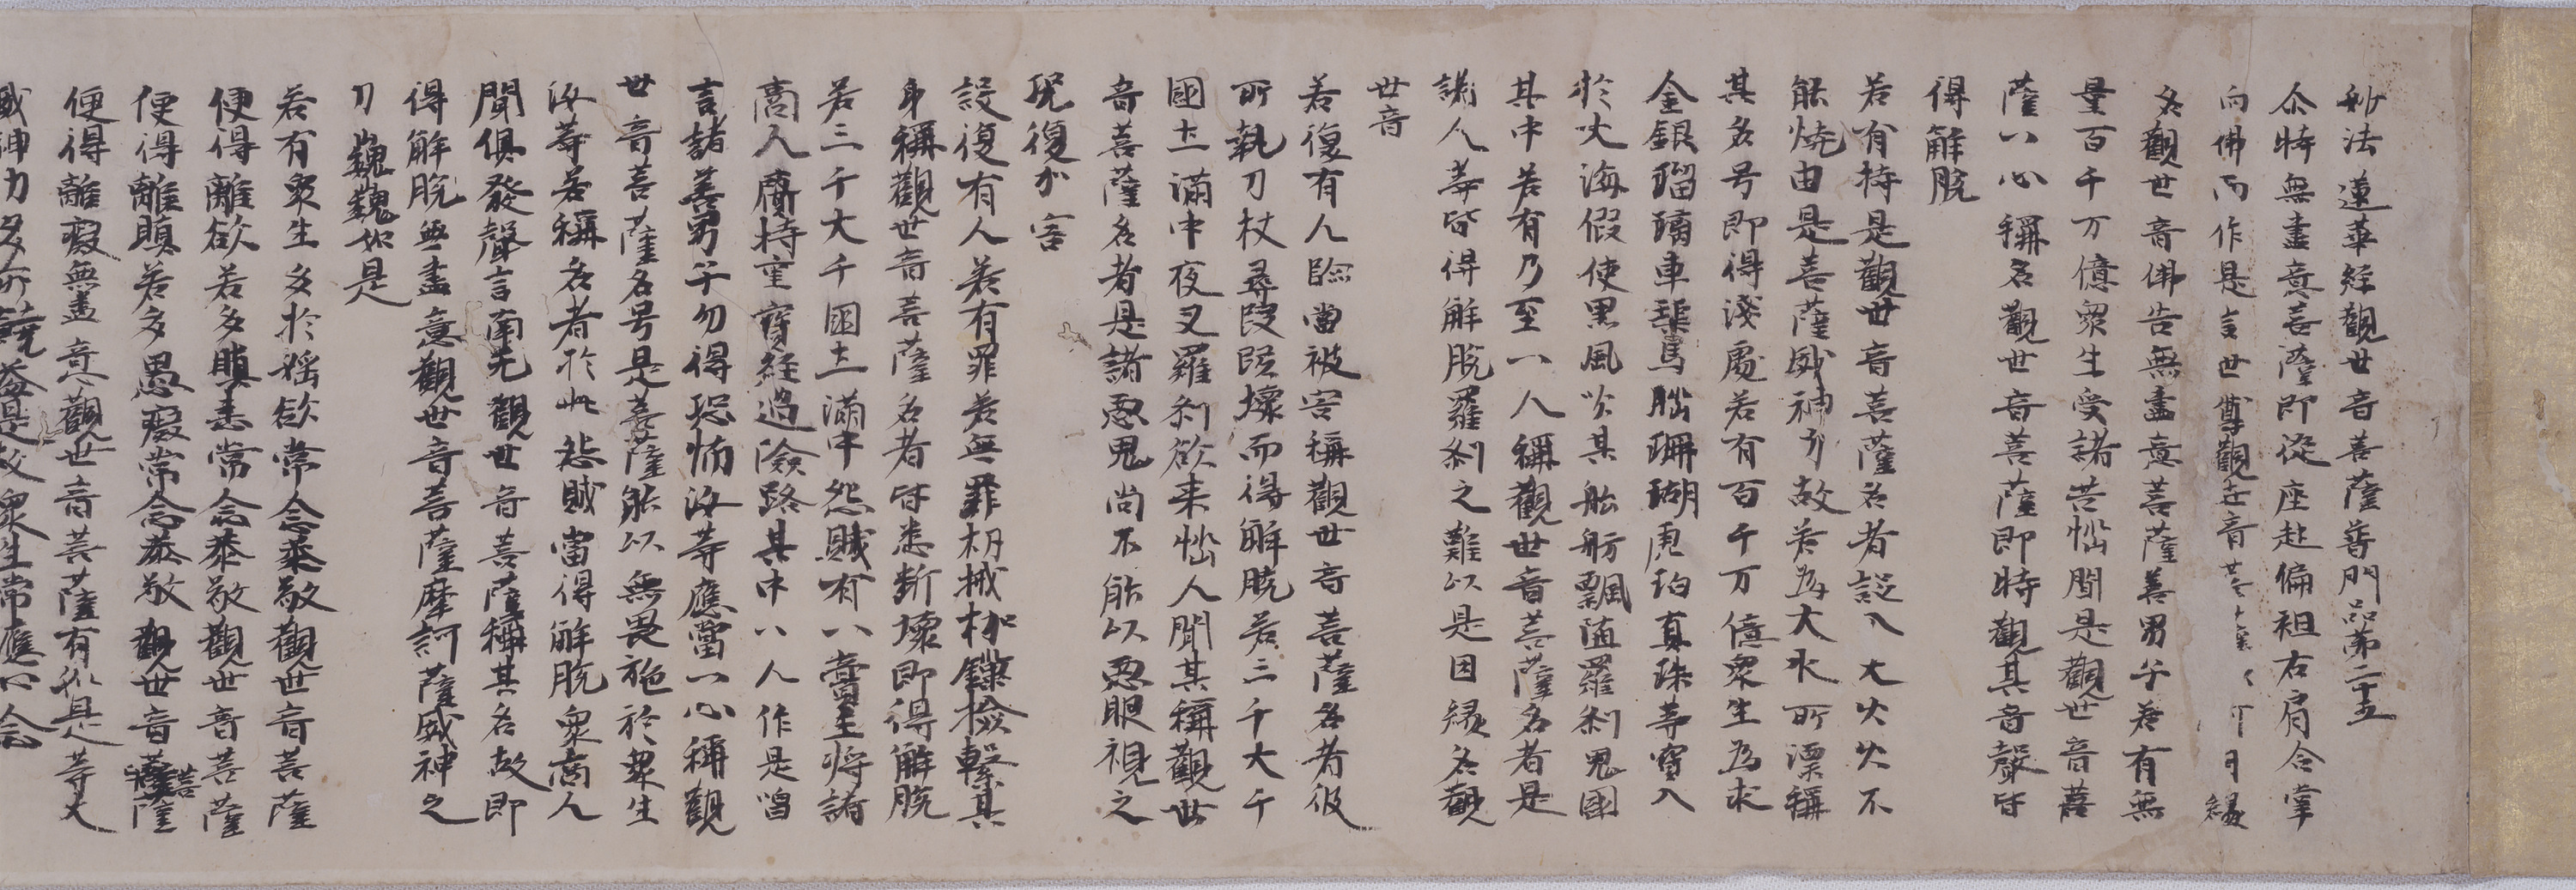 妙法蓮華経觀世音菩薩普門品第二十五
尒時無盡意菩薩即從座起偏袒右肩合掌
向佛而作是言世尊觀世音菩薩 縁
名觀世音佛告無盡意菩薩善男子若有無
量百千万億衆生受諸苦惱聞是觀世音菩
薩一心稱名觀世音菩薩即時觀其音聲皆
得解脱
若有持是觀世音菩薩名者設入大火火不
能焼由是菩薩威神力故若為大水所漂稱
其名号即得淺處若有百千万億衆生為求
金銀瑠璃車𤦲馬瑙珊瑚虎珀真珠等寳入
於大海假使黒風吹其舩舫飄墮羅刹鬼國
其中若有乃至一人稱觀世音菩薩名者是
諸人等皆得解脱羅刹之難以是因縁名觀
世音
若復有人臨當被害稱觀世音菩薩名者彼
所執刀杖尋段段壊而得解脱若三千大千
國土滿中夜叉羅刹欲来惱人聞其稱觀世
音菩薩名者是諸悪鬼尚不能以悪眼視之
況復加害
設復有人若有罪若無罪杻械枷鏁檢繋其
身稱觀世音菩薩名者皆悉断壊即得解脱
若三千大千國土滿中怨賊有一商主将諸
商人齎持重寳経過險路其中一人作是唱
言諸善男子勿得恐怖汝等應當一心稱觀
世音菩薩名号是菩薩能以無畏施於衆生
汝等若稱名者於此怨賊當得解脱衆商人
聞俱發聲言南无觀世音菩薩稱其名故即
得解脱無盡意觀世音菩薩摩訶薩威神之
力巍巍如是
若有衆生多於婬欲常念恭敬觀世音菩薩
便得離欲若多瞋恚常念恭敬觀世音菩薩
便得離瞋若多愚癡常念恭敬觀世音菩薩
便得離癡無盡意觀世音菩薩有如是等大
威神力多所饒益是故衆生常應心念